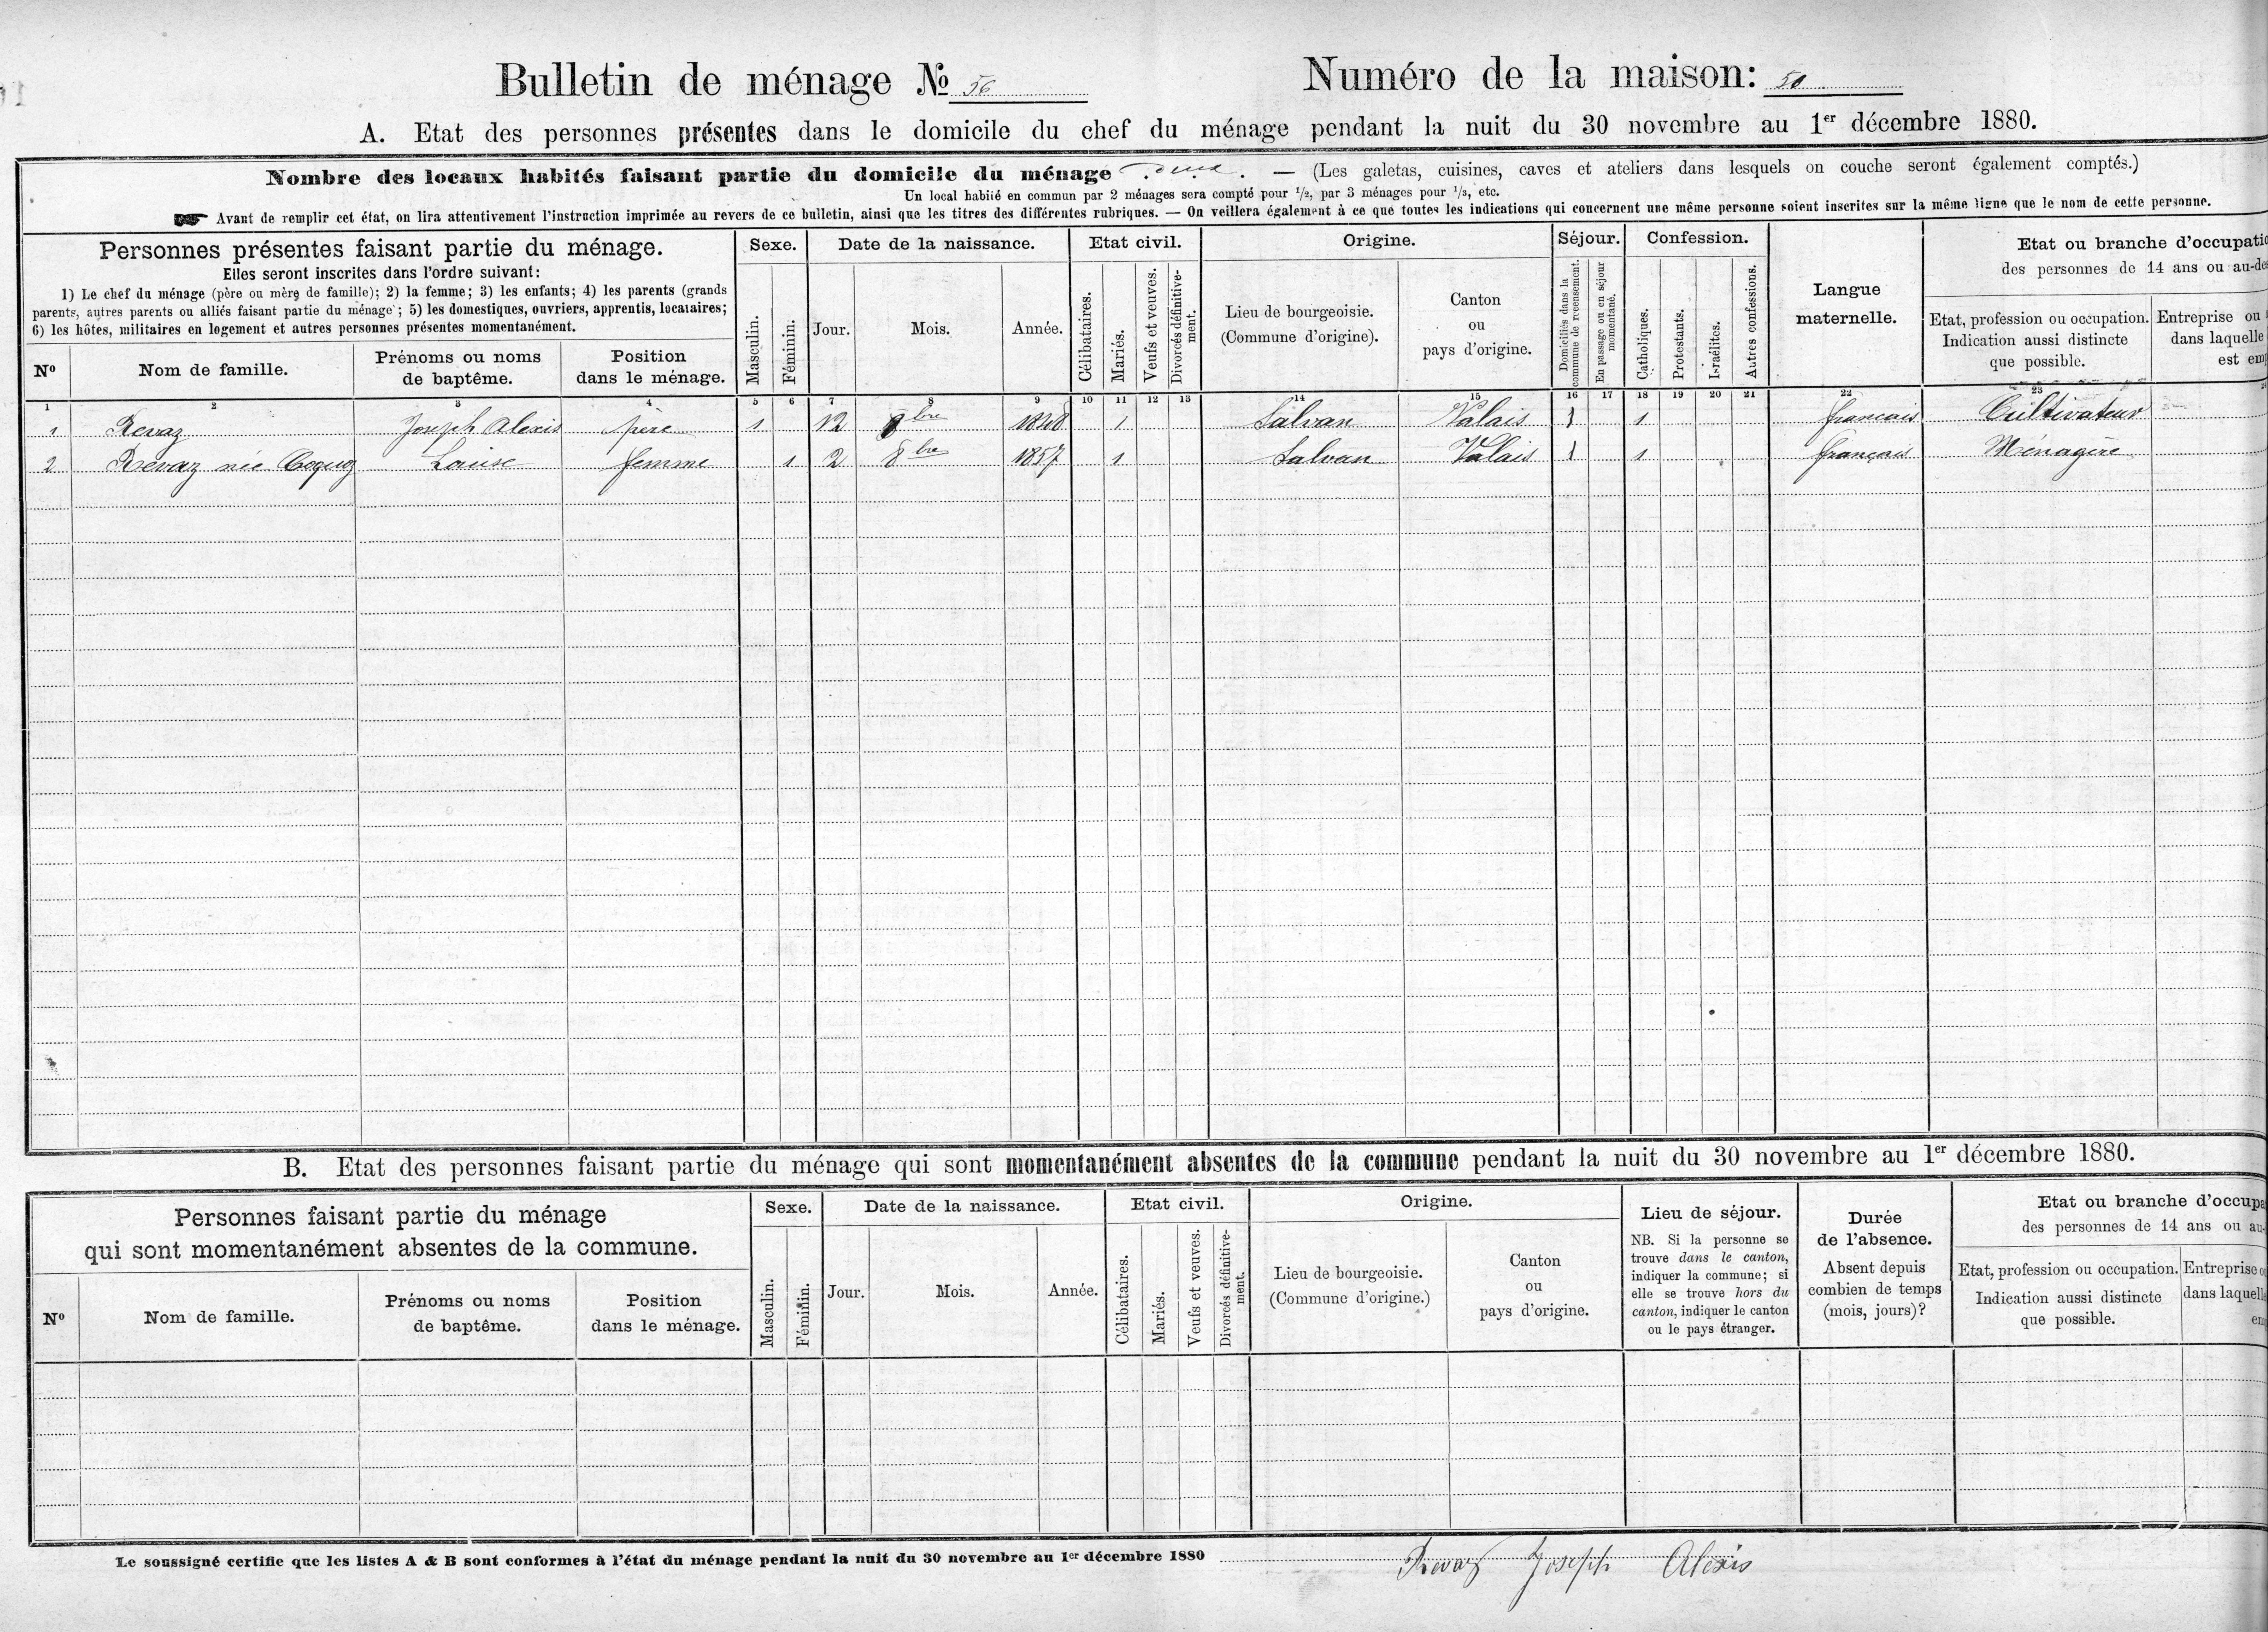 Bulletin de ménage № 56 Numéro de la maison: 50
A. Etat des personnes présentes dans le domicile du chef du ménage pendant la nuit du 30 novembre au 1er décembre 1880.
Nombre des locaux habités faisant partie du domicile du ménage deux. — (Les galetas, cuisines, caves et ateliers dans lesquels on couche seront également comptés.)
Un local habité en commun par 2 ménages sera compté pour 1/2, par 3 ménages pour 1/3, etc.
☛ Avant de remplir cet état, on lira attentivement l'instruction imprimée au revers de ce bulletin, ainsi que les titres des différentes rubriques. — On veillera également à ce que toutes les indications qui concernent une même personne soient inscrites sur la même ligne que le nom de cette personne.
Personnes présentes faisant partie du ménage.
Elles seront inscrites dans l'ordre suivant:
1) Le chef du ménage (père ou mère de famille); 2) la femme; 3) les enfants; 4) les parents (grands
parents, autres parents ou alliés faisant partie du ménage; 5) les domestiques, ouvriers, apprentis, locataires;
6) les hôtes, militaires en logement et autres personnes présentes momentanément.
Nº Nom de famille. Prénoms ou noms de baptême. Position dans le ménage.
Sexe. Masculin. Féminin.
Date de la naissance. Jour. Mois. Année.
Etat civil. Célibataires. Mariés. Veufs et veuves. Divorcés définitive-ment.
Origine. Lieu de bourgeoisie. (Commune d'origine). Canton ou pays d'origine.
Séjour. Domiciliés dans la commune de recensement. En passage ou en séjour momentané.
Confession. Catholiques. Protestants. Israélites. Autres confessions.
Langue maternelle.
Etat ou branche d'occupatio
des personnes de 14 ans ou au-de
Etat, profession ou occupation. Indication aussi distincte que possible.
Entreprise ou
dans laquelle
est em
1 2 3 4 5 6 7 8 9 10 11 12 13 14 15 16 17 18 19 20 21 22 23
1 Revaz Joseph Alexis père 1 12 bre 1 Salvan Valais 1 1 francais Cultivateur
2 Revaz née Coquoz Louise femme 1 2 8bre 1857 1 Salvan Valais 1 1 français Ménagère
B. Etat des personnes faisant partie du ménage qui sont momentanément absentes de la commune pendant la nuit du 30 novembre au 1er décembre 1880.
Personnes faisant partie du ménage
qui sont momentanément absentes de la commune.
Nº Nom de famille. Prénoms ou noms de baptême. Position dans le ménage.
Sexe. Masculin. Féminin.
Date de la naissance. Jour. Mois. Année.
Etat civil. Célibataires. Mariés. Veufs et veuves. Divorcés définitive-ment.
Origine. Lieu de bourgeoisie. (Commune d'origine.) Canton ou pays d'origine.
Lieu de séjour.
NB. Si la personne se
trouve dans le canton,
indiquer la commune; si
elle se trouve hors du
canton, indiquer le canton
ou le pays étranger.
Durée
de l'absence.
Absent depuis
combien de temps
(mois, jours)?
Etat ou branche d'occupa
des personnes de 14 ans ou au-
Etat, profession ou occupation. Indication aussi distincte que possible.
Entreprise o
dans laquell
em
Le soussigné certifie que les listes A & B sont conformes à l'état du ménage pendant la nuit du 30 novembre au 1er décembre 1880 Revaz Joseph Alexis